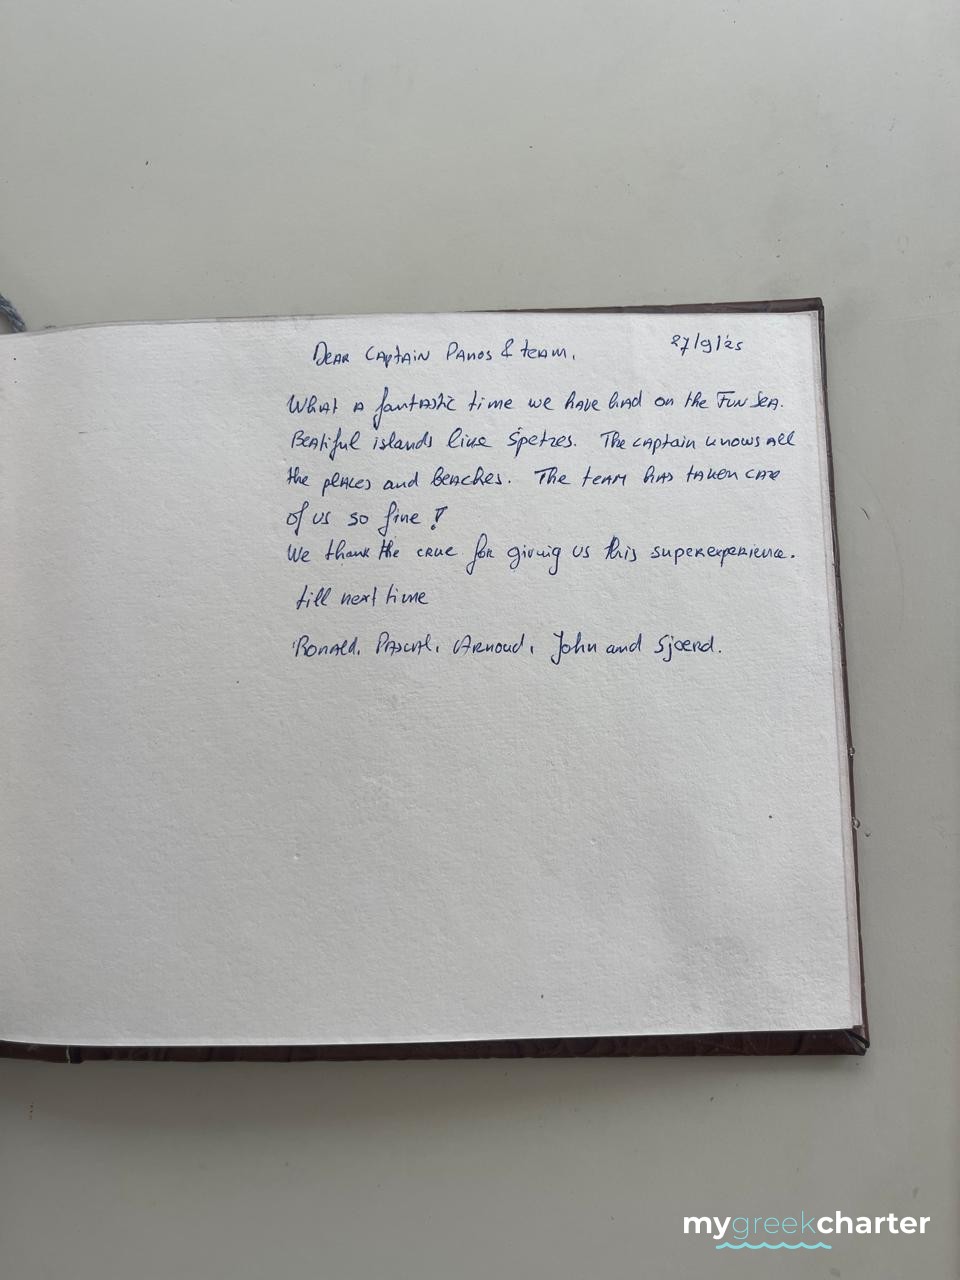 Dear Captain Panos & team,
27/9/'25
What a fantastic time we have had on the Fun Sea.
Beatiful islands like Spetses. The captain knows all
the places and beaches. The team has taken care
of us so fine!
We thank the crue for giving us this superexperience.
till next time
Ronald, Pascal, Arnoud, John and Sjoerd.
mygreekcharter